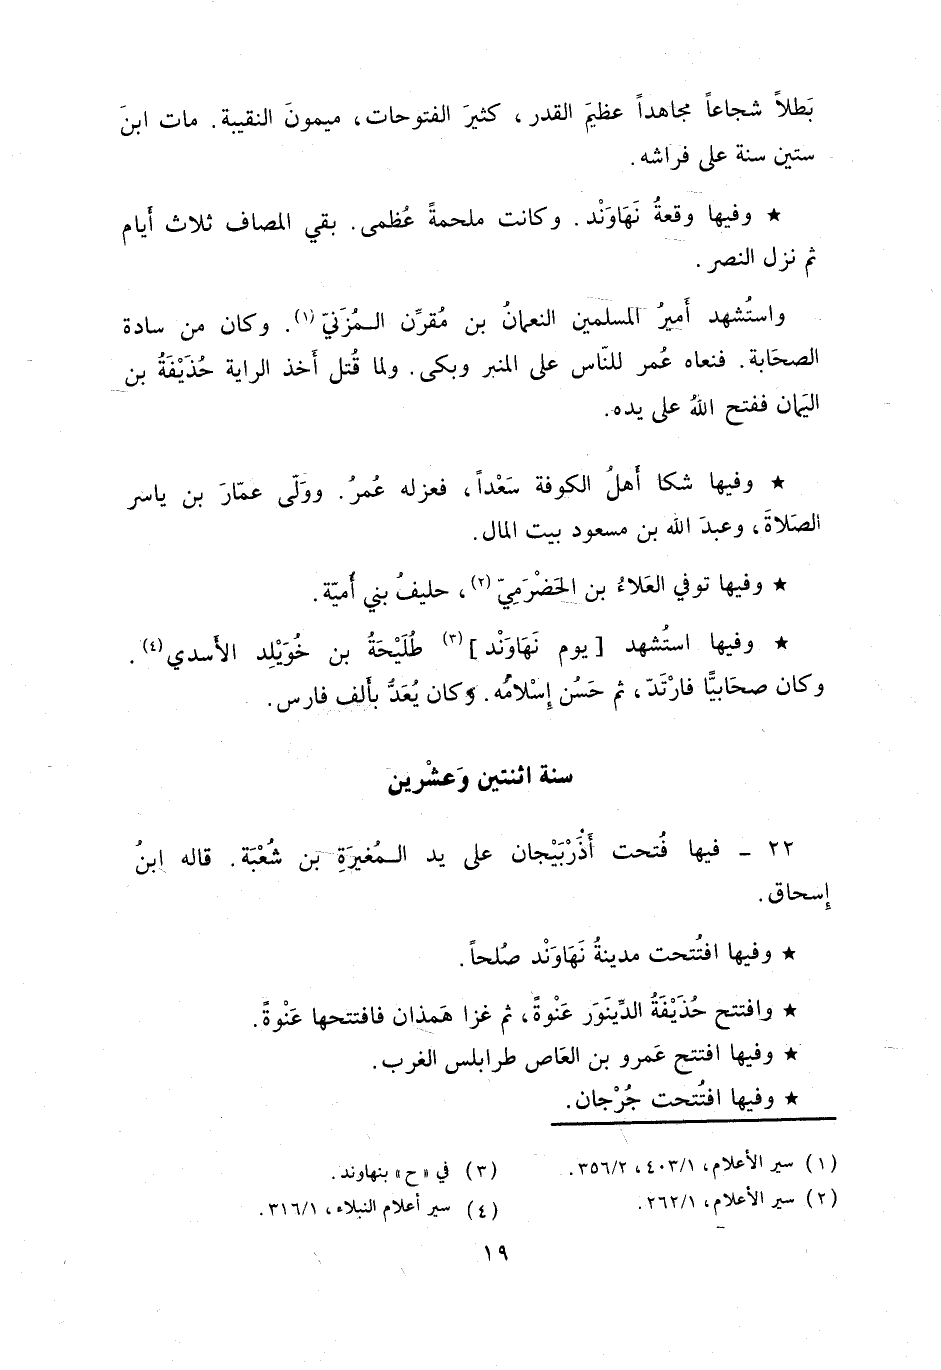 بَطلاً شجاعاً مجاهداً عظيمَ القدر، كثيرَ الفتوحات، ميمونَ النقيبة. مات ابنَ
ستين سنة على فراشه.
★ وفيها وقعةُ نَهَاوَنْد. وكانت ملحمةً عُظمى. بقي المصاف ثلاث أَيام
ثم نزل النصر.
واستُشهد أَميرُ المسلمين النعمانُ بن مُقرِّن المُزَنيّ (١). وكان من سادة
الصحَابة. فنعاه عُمر للنّاس على المنبر وبكى. ولما قُتل أَخذ الراية حُذَيْفَةُ بن
اليَمان ففتح اللهُ على يده.
★ وفيها شكا أَهلُ الكوفة سَعْداً، فعزله عُمرُ. ووَلّى عمّارَ بن ياسر
الصَلاةَ، وعبدَ الله بن مسعود بيت المال.
★ وفيها توفي العَلاءُ بن الحَضْرَمِيّ (٢)، حليفُ بني أُميّة.
★ وفيها استُشهد [يوم نَهَاوَنْد] (٣) طُلَيْحَةُ بن خُوَيْلِد الأَسدي (٤).
وكان صحَابيًّا فارْتَدّ، ثم حَسُن إِسْلامُه. وكان يُعَدُّ بأَلف فارس.
سنة اثنتين وَعشْرين
٢٢ ـ فيها فُتحت أَذْرْبَيْجان على يد المُغيرَةِ بن شُعْبَة. قاله ابنُ
إِسحاق.
★ وفيها افتُتحت مدينةُ نَهَاوَنْد صُلحاً.
★ وافتتح حُذَيْفَةُ الدِّينَوَر عَنْوةً، ثم غزا هَمذان فافتتحها عَنْوةً.
★ وفيها افتتح عَمرو بن العَاص طرابلس الغرب.
★ وفيها افتُتحت جُرْجان.
(١) سير الأعلام، ٤٠٣/١، ٣٥٦/٢.
(٢) سير الأعلام، ٢٦٢/١.
(٣) في «ح» بنهاوند.
(٤) سير أعلام النبلاء، ٣١٦/١.
١٩